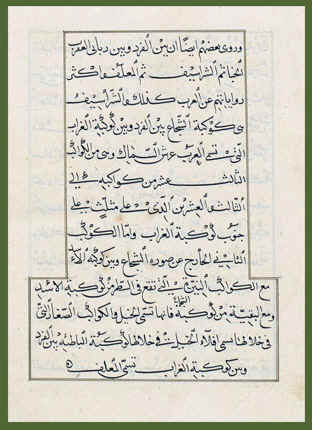 وروى بعضهم ايضا ان بين الفرد وبين زباني العقرب
الخباتم الشراسيف ثم المعلف فاكثر
رواياتهم عن العرب كذلك فالشراسيف
من كوكبة الشجاع بين الفرد وبين كوكبة الغراب
التي تسمى العرب عرش السماك ومن الكواكب
الثالث عشر من كواكبه الى
الثالث والعشرين الذي على مثلث على
جنوب كوكبة الغراب واما الكوكب
الثاني الخارج عن صورة الشجاع وبين كوكبة
مع الكواكب التي تقع في السطر من كوكبة الاسد
ومع البقية من كوكبة فانها تسمى الخيل والكواكب الصغار التي
في خلالها تسمى افلاء الخيل في خلالها كوكبة الباطية بين الفرد
وبين كوكبة الغراب تسمى المعلف